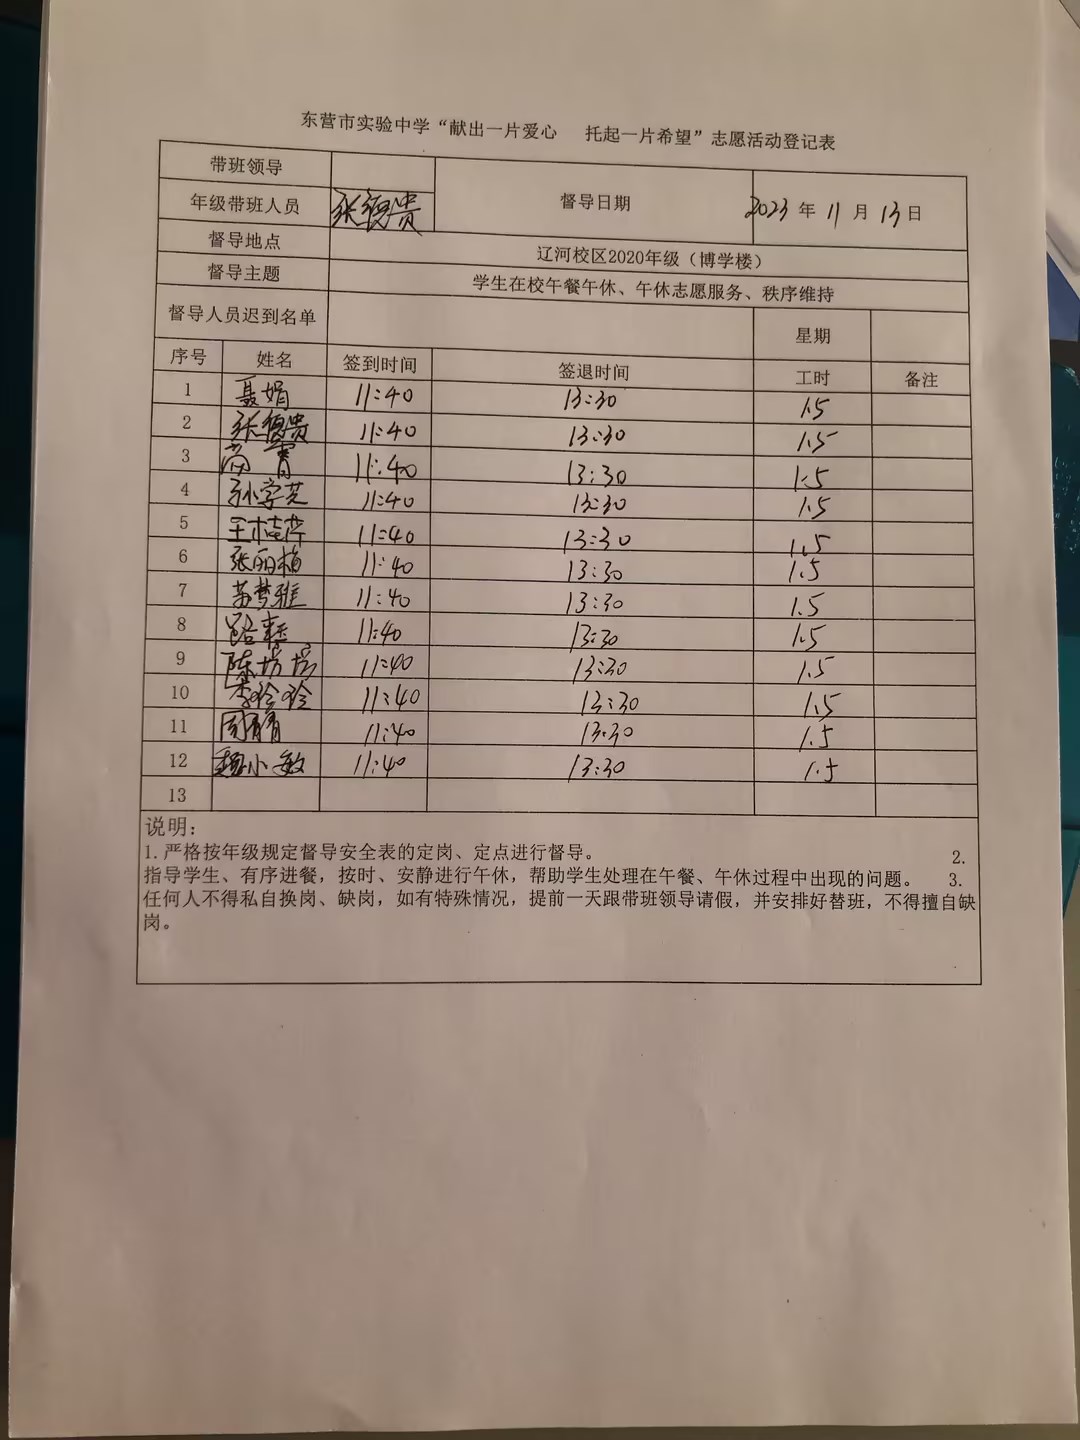 东营市实验中学“献出一片爱心 托起一片希望”志愿活动登记表
带班领导
年级带班人员 张德贵 督导日期 2023年11月13日
督导地点 辽河校区2020年级（博学楼）
督导主题 学生在校午餐午休、午休志愿服务、秩序维持
督导人员迟到名单 星期
序号 姓名 签到时间 签退时间 工时 备注
1 聂娟 11:40 13:30 1.5
2 张德贵 11:40 13:30 1.5
3 11:40 13:30 1.5
4 孙学芝 11:40 13:30 1.5
5 王桂萍 11:40 13:30 1.5
6 张丽梅 11:40 13:30 1.5
7 苏梦雅 11:40 13:30 1.5
8 11:40 13:30 1.5
9 陈培培 11:40 13:30 1.5
10 李玲玲 11:40 13:30 1.5
11 11:40 13:30 1.5
12 魏小敏 11:40 13:30 1.5
13
说明：
1.严格按年级规定督导安全表的定岗、定点进行督导。 2.
指导学生、有序进餐，按时、安静进行午休，帮助学生处理在午餐、午休过程中出现的问题。 3.
任何人不得私自换岗、缺岗，如有特殊情况，提前一天跟带班领导请假，并安排好替班，不得擅自缺
岗。